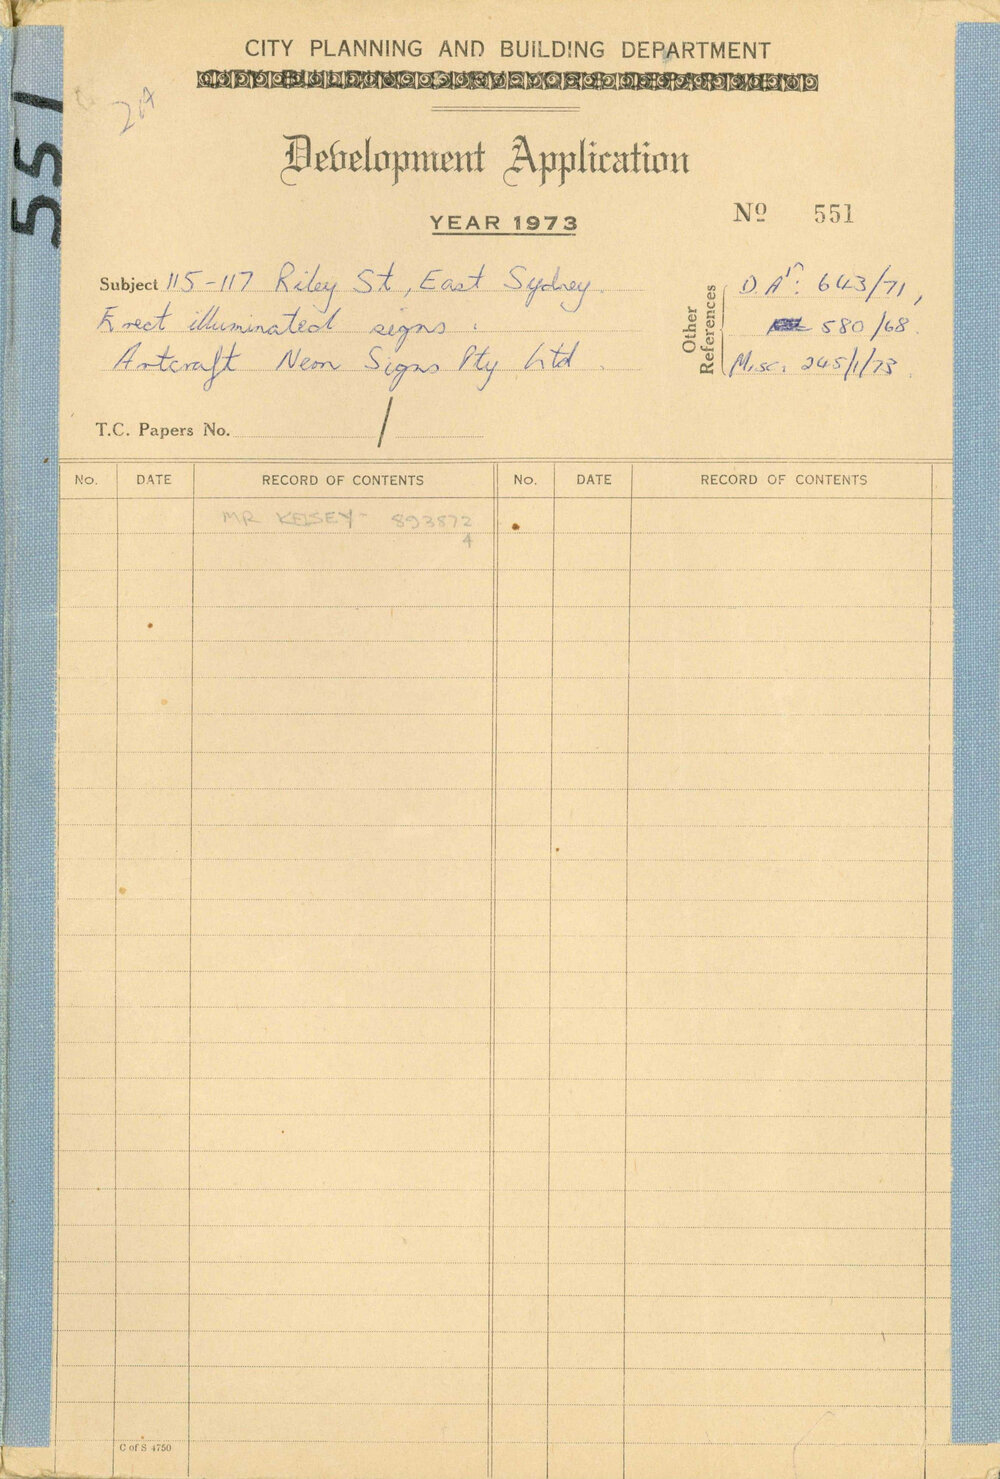 CITY PLANNING AND BUILDING DEPARTMENT
Development Application
YEAR 1973
Nº 551
551
Subject 115-117 Riley St, East Sydney.
Erect illuminated signs.
Artcraft Neon Signs Pty Ltd.
Other References
D A's: 643/71,
580/68.
Misc. 245/1/73.
T.C. Papers No. /
No. DATE RECORD OF CONTENTS No. DATE RECORD OF CONTENTS
MR KELSEY - 893872
4
C of S 4750